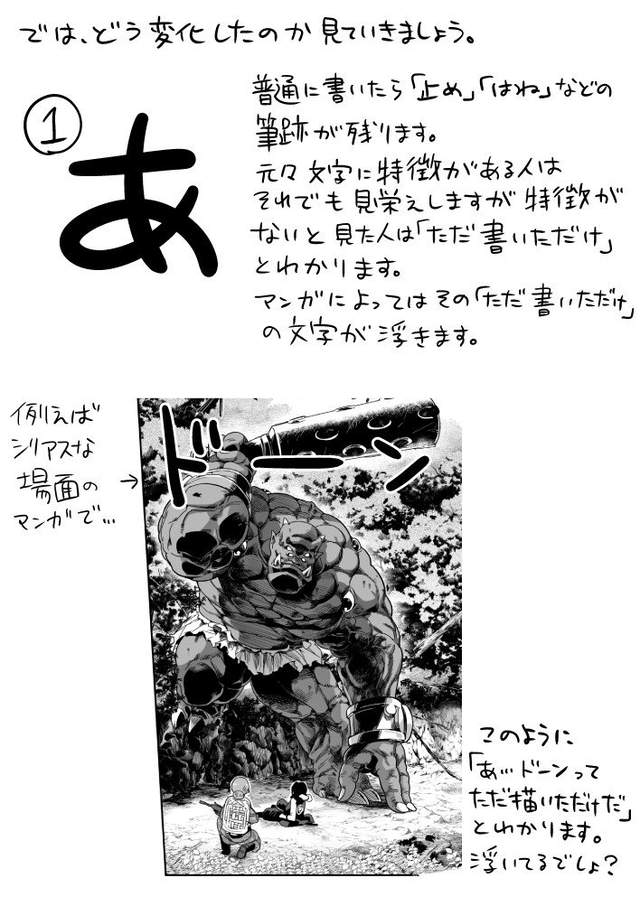 では、どう変化したのか見ていきましょう。
1
あ
普通に書いたら「止め」「はね」などの
筆跡が残ります。
元々文字に特徴がある人は
それでも見栄えしますが特徴が
ないと見た人は「ただ書いただけ」
とわかります。
マンガによってはその「ただ書いただけ」
の文字が浮きます。
例えば
シリアスな
場面の→
マンガで…
ドーン
このように
「あ…ドーンって
ただ描いただけだ」
とわかります。
浮いてるでしょ？